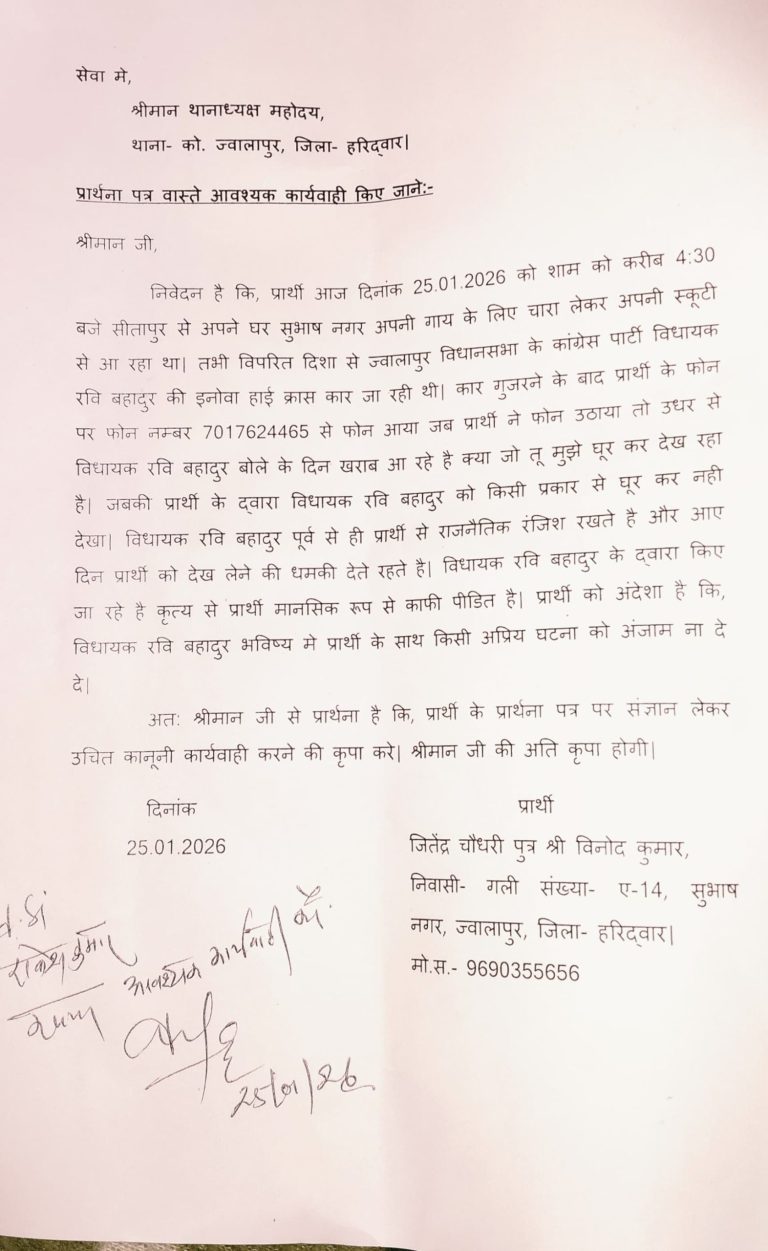 सेवा मे,
श्रीमान थानाध्यक्ष महोदय,
थाना- को. ज्वालापुर, जिला- हरिद्वार|
प्रार्थना पत्र वास्ते आवश्यक कार्यवाही किए जाने:-
श्रीमान जी,
निवेदन है कि, प्रार्थी आज दिनांक 25.01.2026 को शाम को करीब 4:30
बजे सीतापुर से अपने घर सुभाष नगर अपनी गाय के लिए चारा लेकर अपनी स्कूटी
से आ रहा था| तभी विपरित दिशा से ज्वालापुर विधानसभा के कांग्रेस पार्टी विधायक
रवि बहादुर की इनोवा हाई क्रास कार जा रही थी| कार गुजरने के बाद प्रार्थी के फोन
पर फोन नम्बर 7017624465 से फोन आया जब प्रार्थी ने फोन उठाया तो उधर से
विधायक रवि बहादुर बोले के दिन खराब आ रहे है क्या जो तू मुझे घूर कर देख रहा
है| जबकी प्रार्थी के द्वारा विधायक रवि बहादुर को किसी प्रकार से घूर कर नही
देखा| विधायक रवि बहादुर पूर्व से ही प्रार्थी से राजनैतिक रंजिश रखते है और आए
दिन प्रार्थी को देख लेने की धमकी देते रहते है| विधायक रवि बहादुर के द्वारा किए
जा रहे है कृत्य से प्रार्थी मानसिक रूप से काफी पीडित है| प्रार्थी को अंदेशा है कि,
विधायक रवि बहादुर भविष्य मे प्रार्थी के साथ किसी अप्रिय घटना को अंजाम ना दे
दे|
अत: श्रीमान जी से प्रार्थना है कि, प्रार्थी के प्रार्थना पत्र पर संज्ञान लेकर
उचित कानूनी कार्यवाही करने की कृपा करे| श्रीमान जी की अति कृपा होगी|
दिनांक
25.01.2026
प्रार्थी
जितेंद्र चौधरी पुत्र श्री विनोद कुमार,
निवासी- गली संख्या- ए-14, सुभाष
नगर, ज्वालापुर, जिला- हरिद्वार|
मो.स.- 9690355656
राकेश कुमार
आवश्यक कार्यवाही करें.
25/01/26